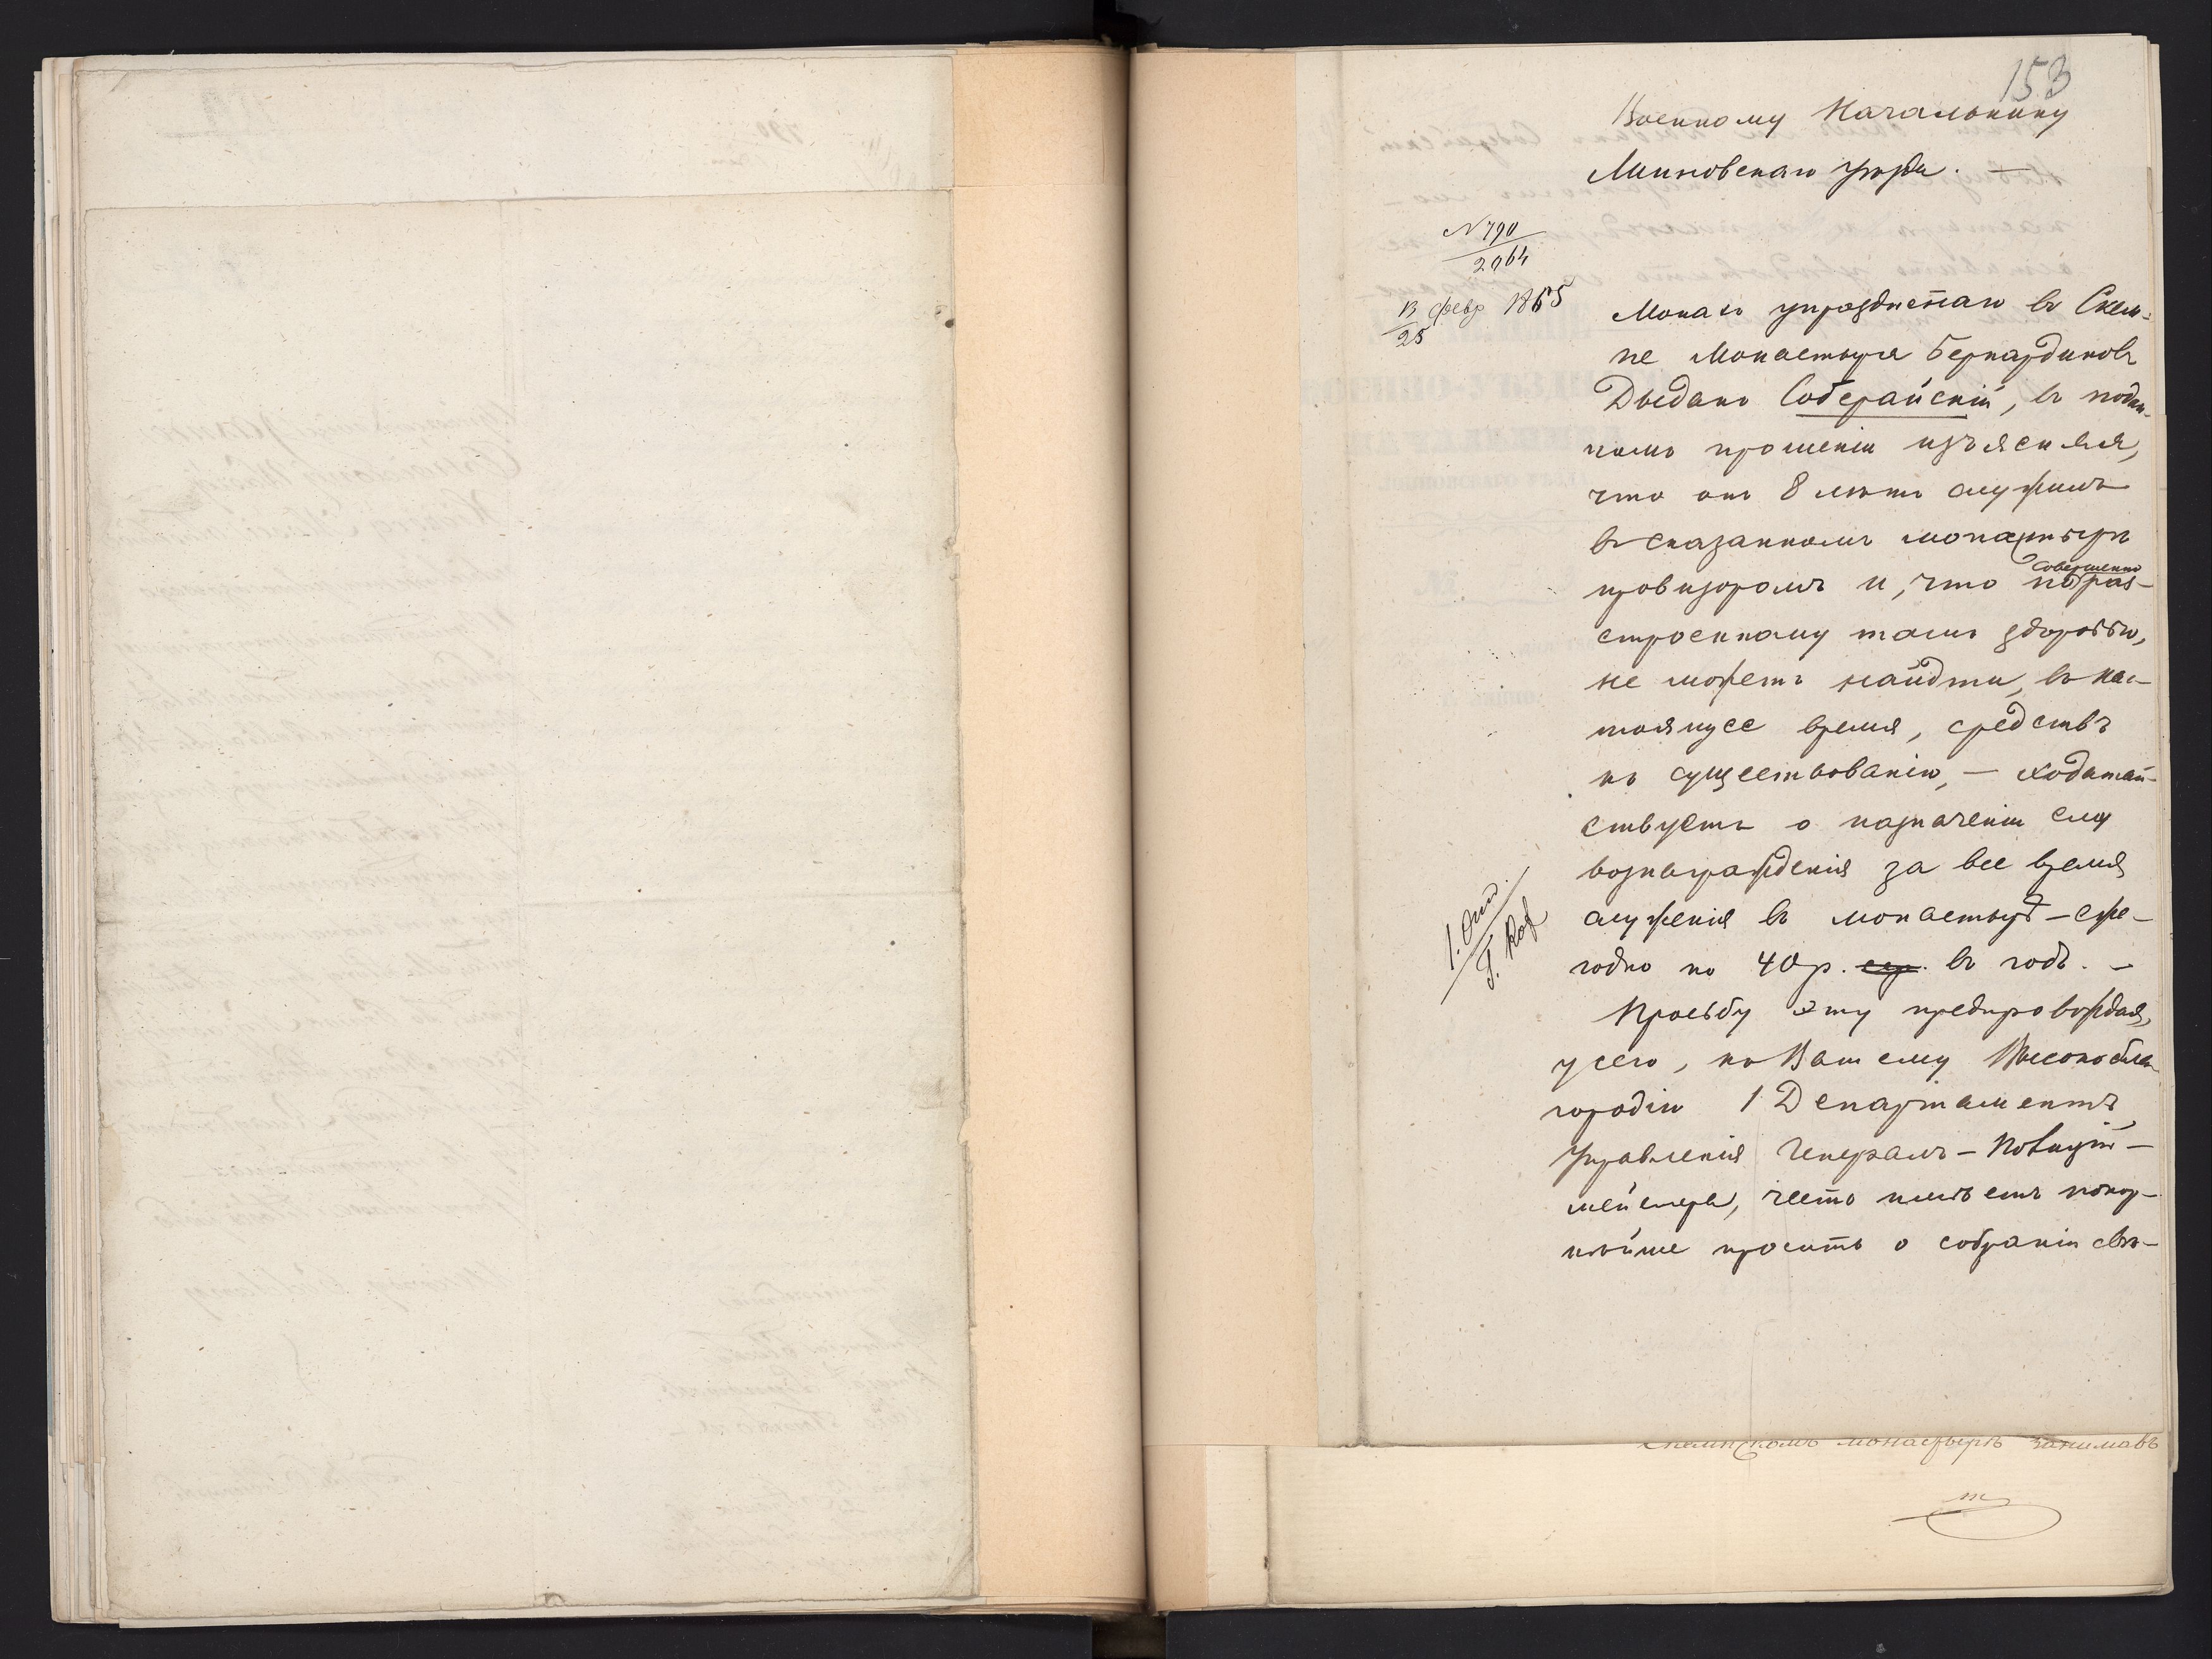 153
Военному Начальнику
Липновскаго уѣзда. —
N 790
2064
13 февр 1865
25
Монахъ упраздненнаго въ Скем-
пе Монастыря Бернардиновъ
Дыдакъ Соберайскій, въ подан-
номъ прошеніи изъясняя,
что онъ 8 лѣтъ служилъ
въ сказанномъ монастырѣ
провизоромъ и, что по совершенно раз-
строенному тамъ здоровью,
не можетъ найдти, въ нас-
тоящее время, средствъ
къ существованію, — ходатай-
ствуетъ о назначеніи ему
вознагражденія за все время
служенія въ монастырѣ — еже-
годно по 40 р. сер. въ годъ. —
Просьбу эту препровождая,
у сего, къ Вашему Высокобла-
городію 1 Департаментъ
Управленія Генералъ-Полицій-
мейстера, честь имѣетъ покор-
нѣйше просить о собраніи свѣ-
Скемпскомъ монастырѣ занималъ